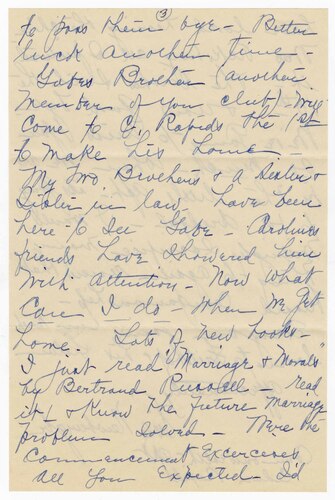 (3)
to pass them bye - Better
luck another time -
Gabes Brother (another
member of you club) - will
come to C. Rapids the 1st
to make his home -
My two Brothers & a sister &
Sister in law, have been
here to see Gabe - Carolines
friends have showered him
with attention - Now what
can I do - when we get
home. Lots of new books -
I just read "Marriage & Morals"
by Bertrand Russell - read
it! & know the future marriage
problem solved - Were the
Commencement Excercises
all you expected I'd